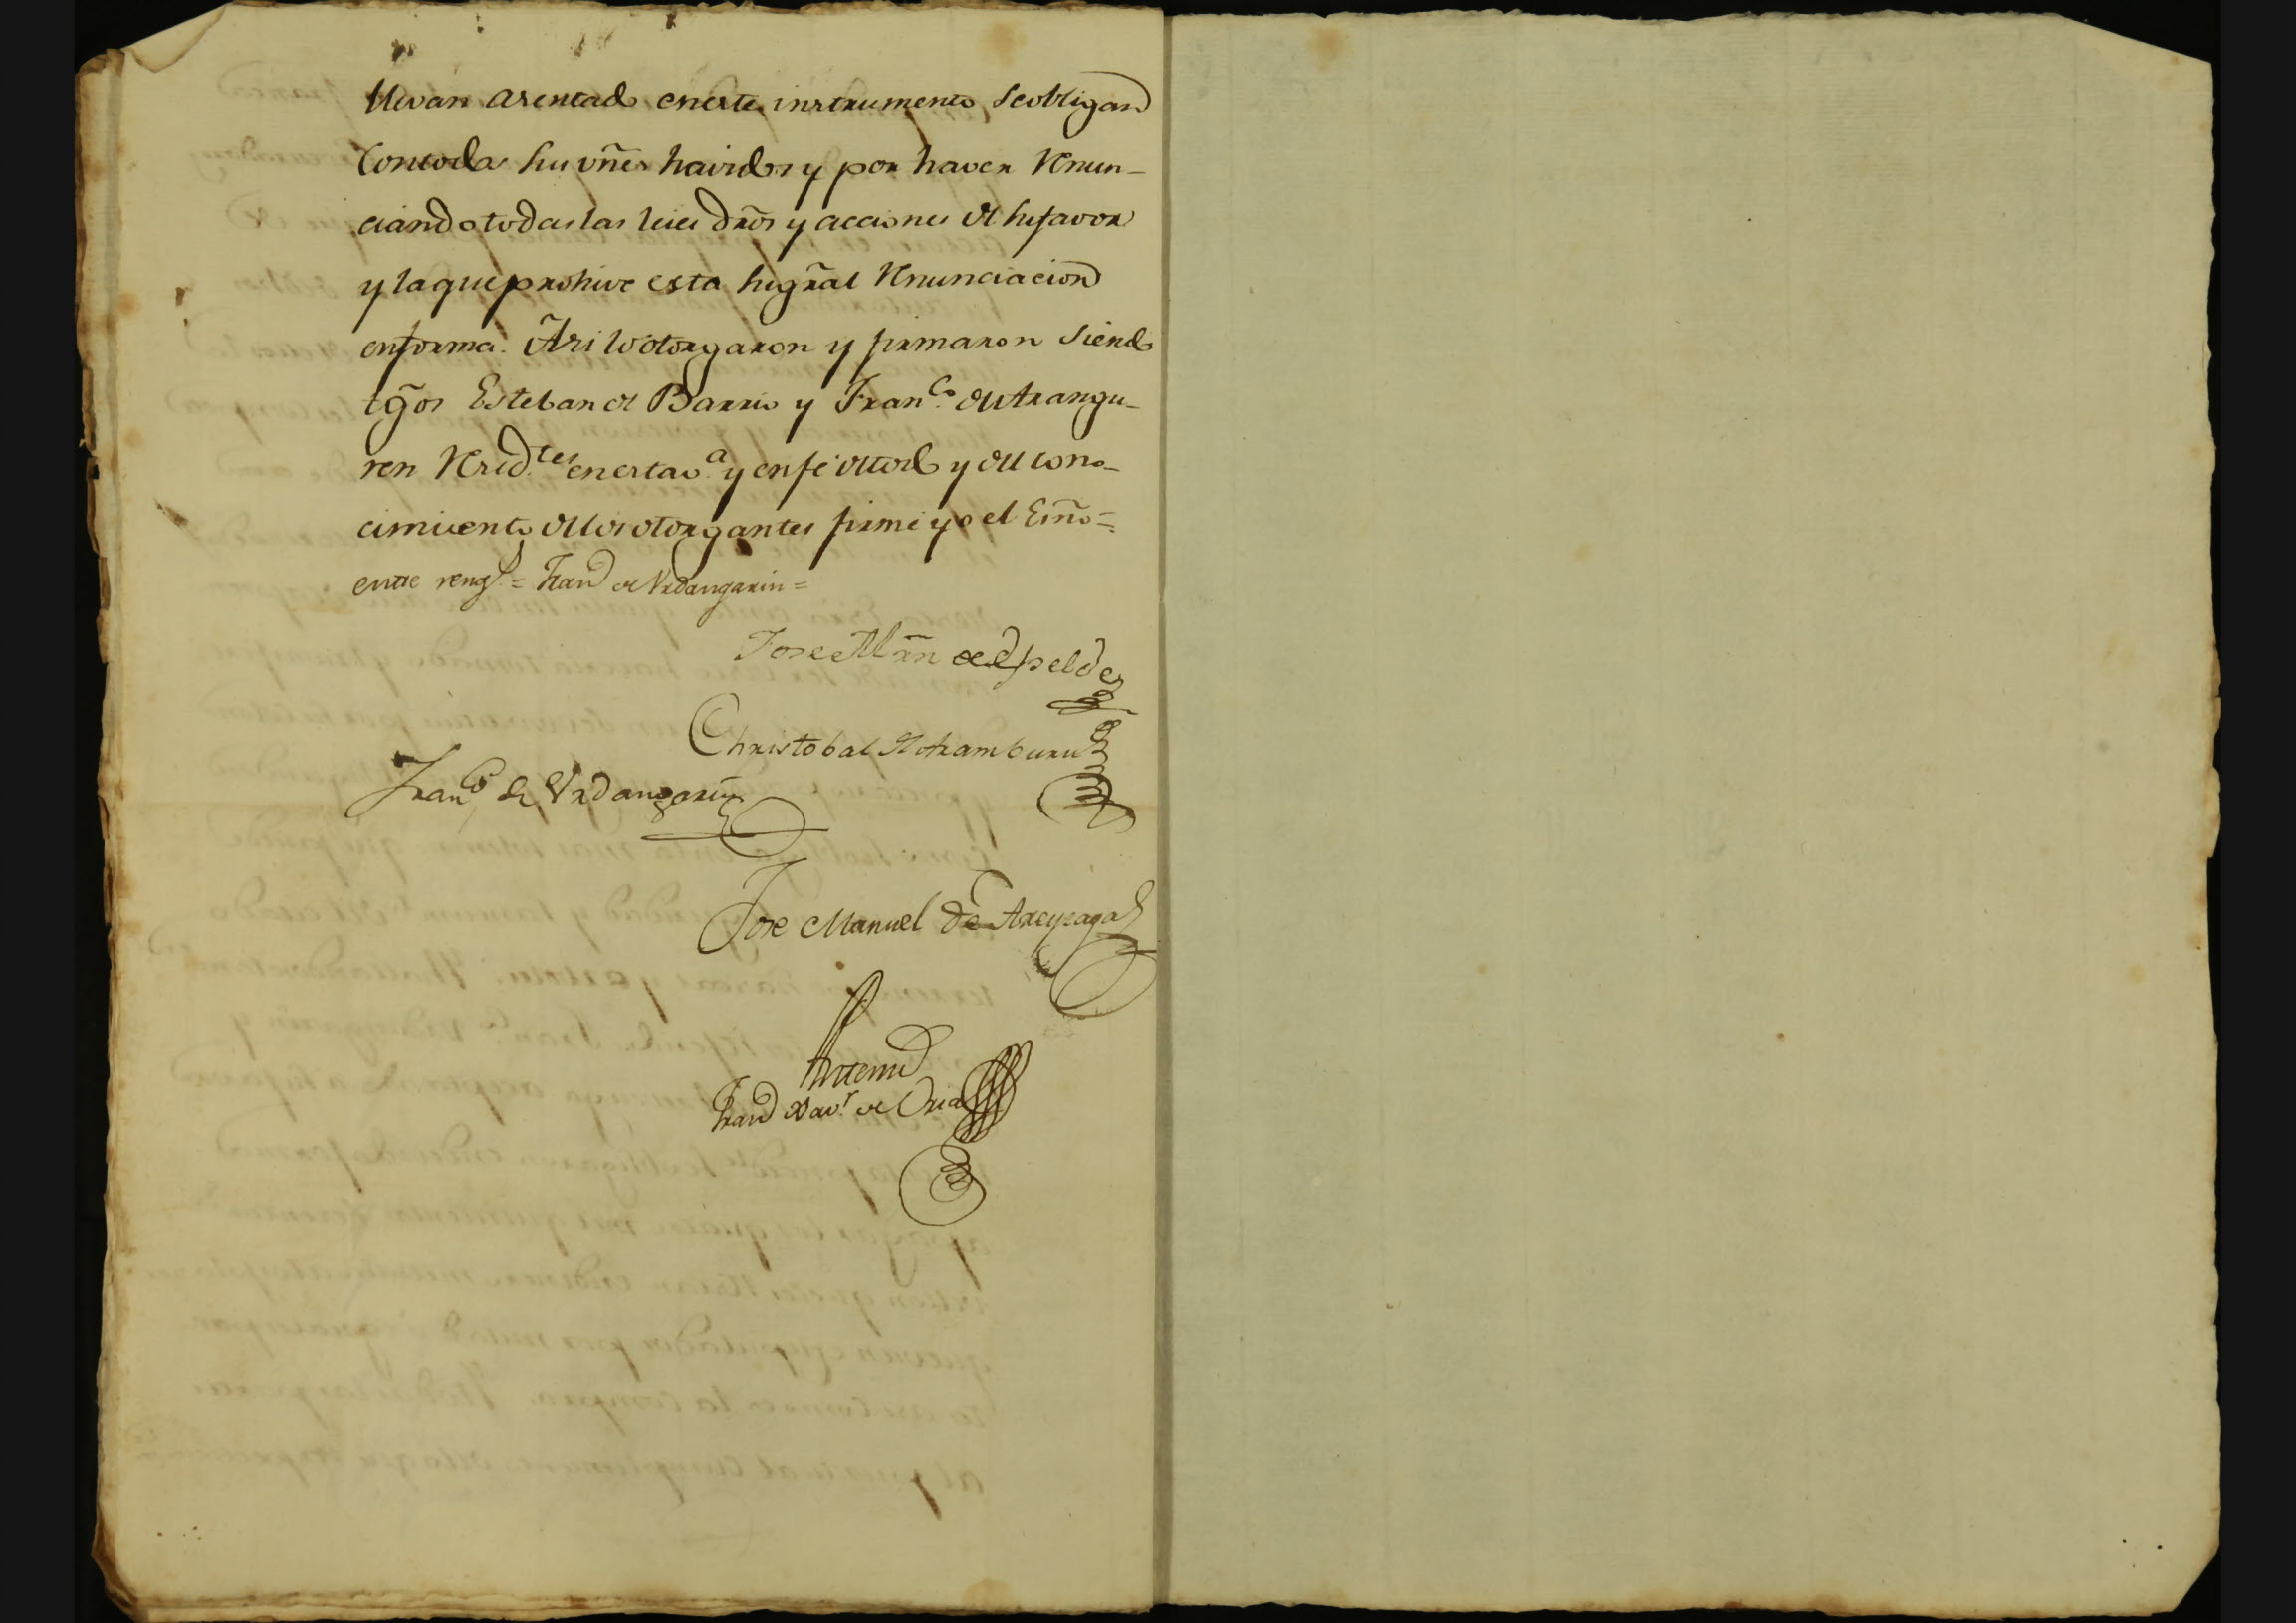 llevan asentado en este instrumento, se obligan
Con todos sus vñes havidos y por haver renun-
ciando todas las leies dr̃os y acciones de su favor
y la que prohive esta su gr̃al renunciacion
en forma. Asi lo otorgaron y firmaron siendo
tg̃os Esteban de Barrio y Fran.co de Arangu-
ren resid.tes en esta v.a y en fe de todo y del cono-
cimiento de los otorgantes firmé yo el Esn̄o=
entre rengs = Fran.co de Vrdangarin =
Jose Mr̃n de Espelde
Christobal de Aramburu
Fran.co de Vrdangarin
Jose Manuel de Areyzaga
Antemi
Fran.co Xav.r de Oria